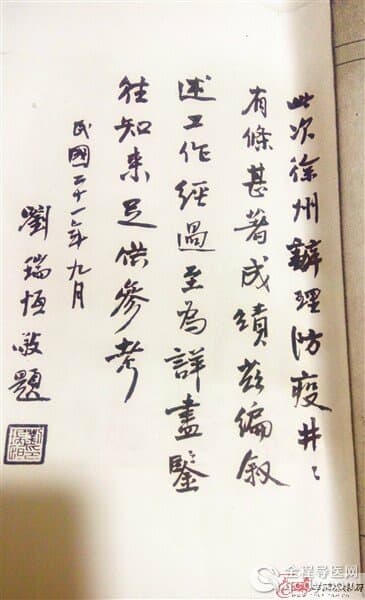 此次徐州辦理防疫井〻
有條甚著成績茲編叙
述工作經過至為詳盡鑒
往知来足供參考
民國二十一年九月
劉瑞恒敬題
全程导医网